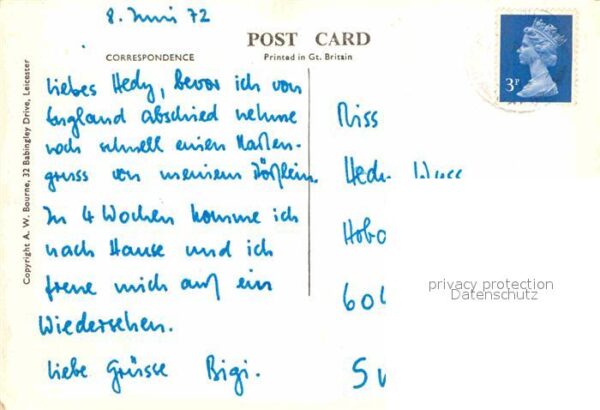 8. Juni 72
POST CARD
CORRESPONDENCE
Printed in Gt. Britain
Copyright A. W. Bourne, 32 Babingley Drive, Leicester
3P
liebes Hedy, bevor ich von
England abschied nehme
noch schnell einen Karten-
gruss von meinem Dörflein.
In 4 Wochen komme ich
nach Hause und ich
freue mich auf ein
Wiedersehen.
liebe Grüsse Bigi.
Miss
privacy protection
Datenschutz